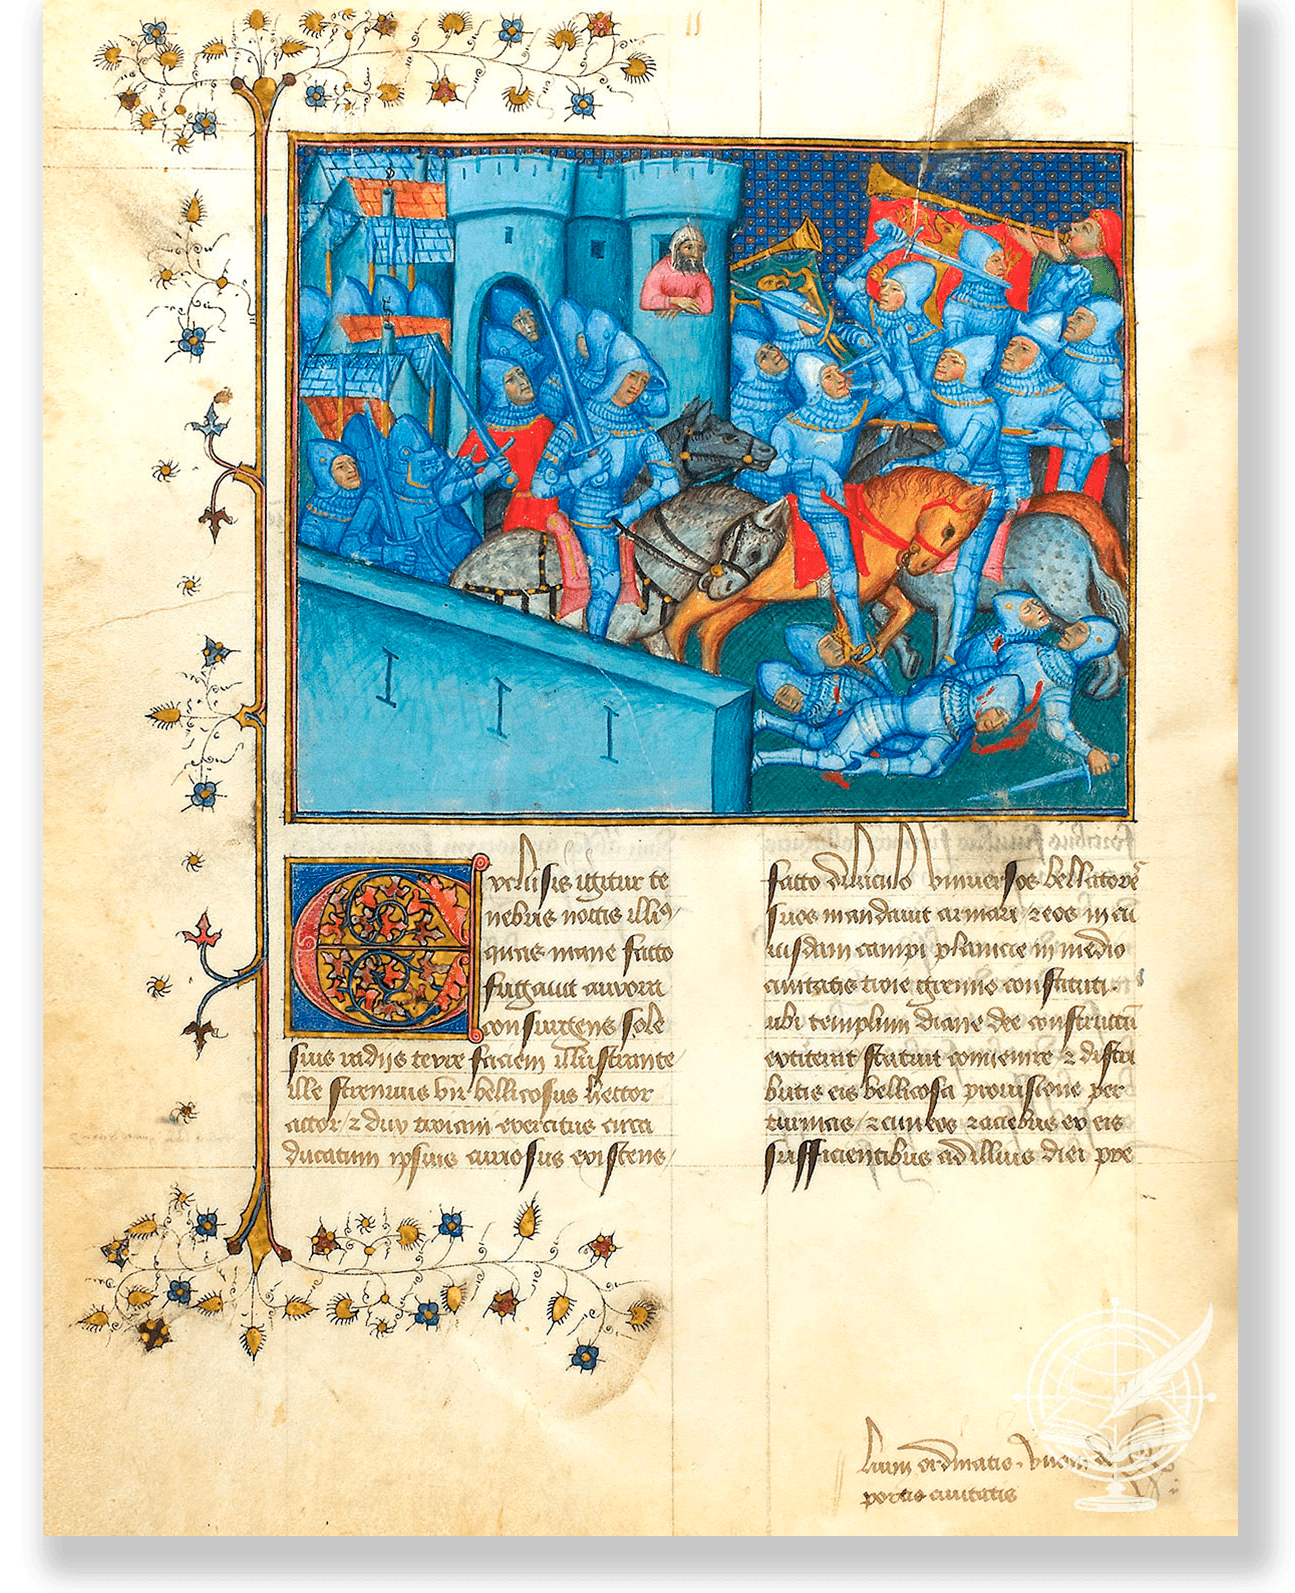 Evulsis igitur te
nebris noctis illiꝰ
quas mane facto
fugauit aurora
consurgens sole
suis radijs terre faciem illustrante
ille strenuus vir bellicosus hector
actor ⁊ dux troiani exercitus circa
ducatum ipsius curiosus existens
facto diluculo vniuersos bellatores
suos mandauit armari ⁊ eos in cu
iusdam campi planicie in medio
ciuitatis troie gremio constituti
ubi templum diane dee constructū
extiterat statuit conuenire ⁊ distri
butis eis bellicosa prouisione per
turmas ⁊ cuneos ⁊ aciebus ex eis
sufficientibus ad illius diei pre
lium ordinatis
portis ciuitatis